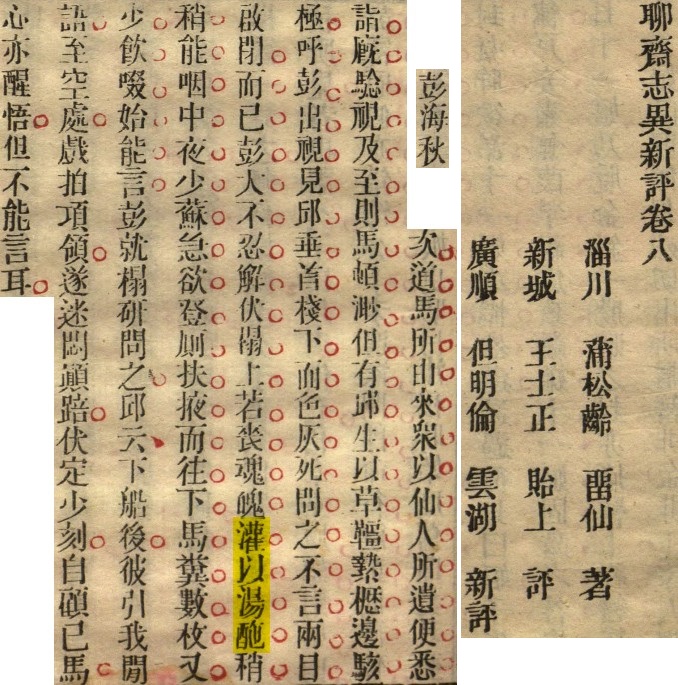 聊齋志異新評卷八
淄川 蒲松齡 畱仙 著
新城 王士正 貽上 評
廣順 但明倫 雲湖 新評
彭海秋
次道馬所由來衆以仙人所遺便悉
詣廄驗視及至則馬頓渺但有邱生以草韁縶櫪邊駭
極呼彭出視見邱垂首棧下面色灰死問之不言兩目
啟閉而已彭大不忍解伏榻上若喪魂魄灌以湯酏稍
稍能咽中夜少蘇急欲登厠扶掖而往下馬糞數枚又
少飲啜始能言彭就榻研問之邱云下船後彼引我閒
語至空處戲拍項領遂迷悶顚踣伏定少刻自顧已馬
心亦醒悟但不能言耳